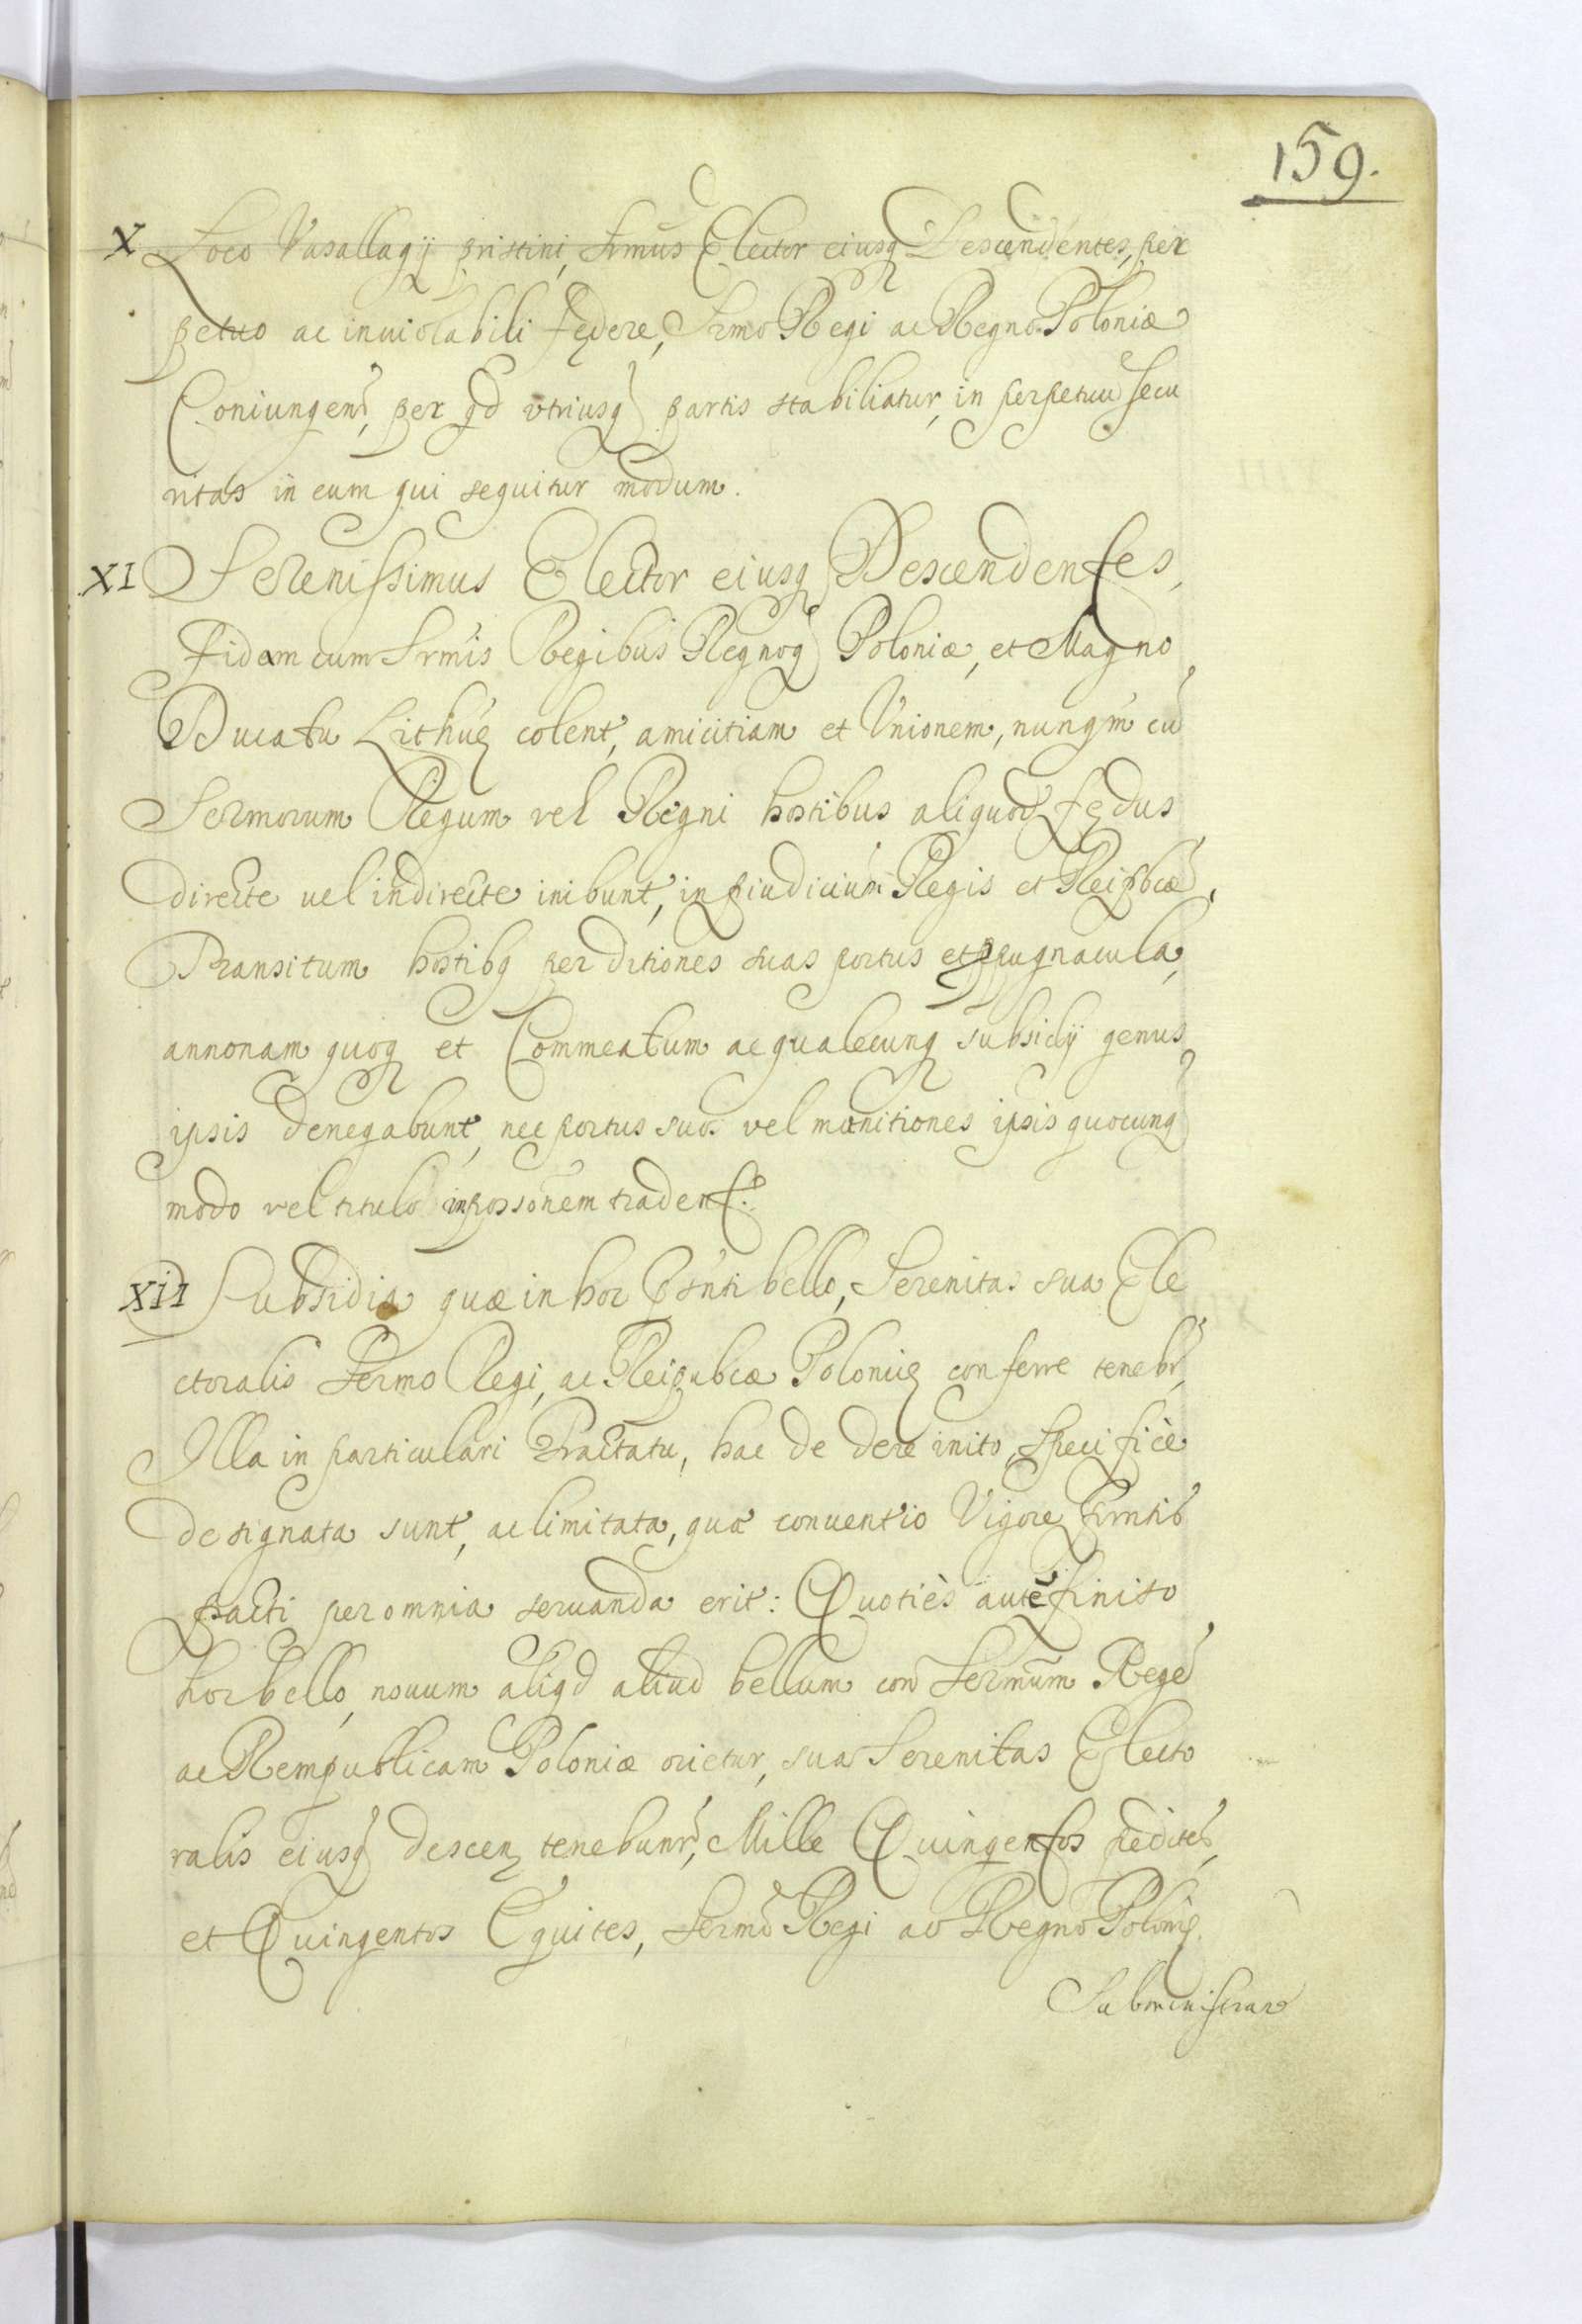 159.
X Loco Vasallagij pristini, Srmus Elector eiusq Descendentes, per
petuo ac inuiolabili fędere, Srmo Regi ac Regno Poloniæ
Coniungent, per qd vtriusq partis stabiliatur, in perpetuu secu
ritas in eum qui sequitur modum.
XI Serenissimus Elector eiusq Descendentes,
Fidam cum Srmis Regibus Regnoq Poloniæ, et Magno
Ducatu Lithuę colent, amicitiam et Vnionem, nunqm cu
Sermorum Regum vel Regni hostibus aliquod fędus
directe uel indirecte inibunt, in piudicium Regis et Reipbcæ,
Transitum hostibq per ditiones suas portus et ppugnacula,
annonam quoq et Commeatum ac qualecunq subsidij genus
ipsis denegabunt, nec portus suos vel munitiones ipsis quocunq
modo vel titulo in possonem tradent.
XII Subsidia quæ in hoc pśnti bello, Serenitas sua Ele
ctoralis Sermo Regi, ac Reipubcæ Polonię conferre tenebr,
Illa in particulari Tractatu, hac de dere inito, specificè
designata sunt, ac limitata, quæ conuentio Vigore
pacti per omnia seruanda erit: Quotiès autē finito
hoc bello, nouum aliqd aliud bellum con Sermum Regē
ac Rempublicam Poloniæ orietur, sua Serenitas Electo
ralis eiusq descen tenebunr, Mille Quingentos pedites,
et Quingentos Equites, Sermo Regi ac Regno Polonię
Subministrar